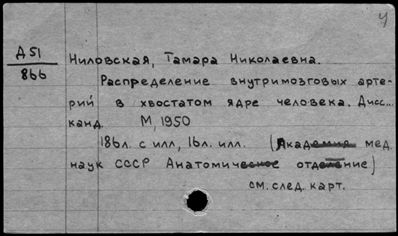 У
Д51
866
Ниловская, Тамара Николаевна.
Распределение внутримозговых арте-
рий в хвостатом ядре человека. Дисс...
канд М, 1950
186л. с илл, 16л. илл. (Академия мед
наук СССР Анатомическое отделение)
см. след. карт.